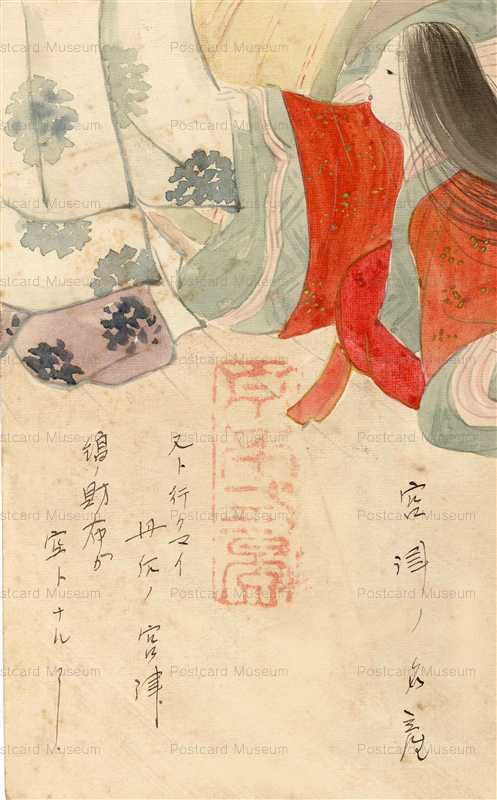 宮津ノ名産
又ト行クマイ
丹后ノ宮津
縞ノ財布が
空トナル
Postcard Museum